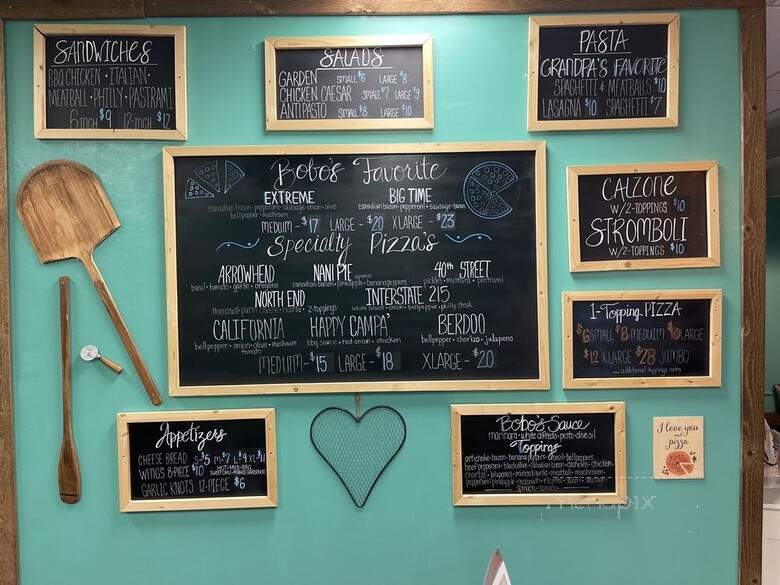 SANDWICHES
BBQ CHICKEN • ITALIAN •
MEATBALL • PHILLY • PASTRAMI
6-inch $9 12-inch $12
SALADS
GARDEN SMALL $6 LARGE $8
CHICKEN CAESAR SMALL $7 LARGE $9
ANTIPASTO SMALL $8 LARGE $10
PASTA
GRANDPA'S FAVORITE
SPAGHETTI & MEATBALLS $10
LASAGNA $10 SPAGHETTI $7
Bobo's Favorite
EXTREME BIG TIME
canadian bacon • pepperoni • sausage • onion • olive canadian bacon • pepperoni • sausage •
bellpepper • mushroom
MEDUIM - $17 LARGE - $20 XLARGE - $23
Specialty Pizza's
ARROWHEAD NANI PIE 40th STREET
basil • tomato • garlic • oregano canadian bacon • pineapple • banana peppers pickles • mustard • pastrami
NORTH END INTERSTATE 215
thin crust • ricotta • 2-toppings onion • bellpepper • philly steak
CALIFORNIA HAPPY CAMPA' BERDOO
bellpepper • onion • olive • mushroom bbq sauce • red onion • chicken bellpepper • chorizo • jalapeno
tomato
MEDIUM - $15 LARGE - $18 XLARGE - $20
CALZONE
W/2-TOPPINGS $10
STROMBOLI
W/2-TOPPINGS $10
1-Topping PIZZA
$6 SMALL $8 MEDUIM $10 LARGE
$12 XLARGE $28 JUMBO
... additional toppings extra
Appetizers
CHEESE BREAD S-$5 M-$7 L-$9 XL-$11
WINGS 8-PIECE $10
GARLIC KNOTS 12-PIECE $6
Bobo's Sauce
marinara • white alfredo • pesto • olive oil
Toppings
artichoke • bacon • banana peppers • basil • bellpeppers
beef pepperoni • black olive • canadian bacon • • chicken
chorizo • jalapenos • minced garlic • meatball • mushroom
pepperoni • pineapple •
spinach • tomato
I love you
pizza